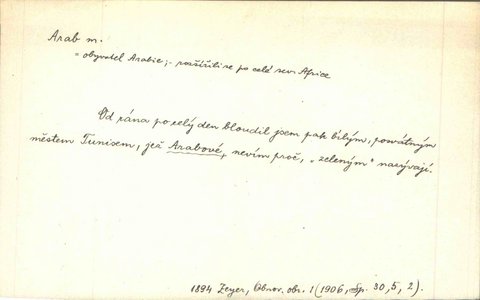 Arab m.
= obyvatel Arabie; - rozšířili se po celé sev. Africe
Od rána po celý den bloudil jsem pak bílým, posvátným
městem Tunisem, jež Arabové, nevím proč, „zeleným" nazývají.
1894 Zeyer, Obnov. obr. 1 (1906, Sp. 30, 5, 2).